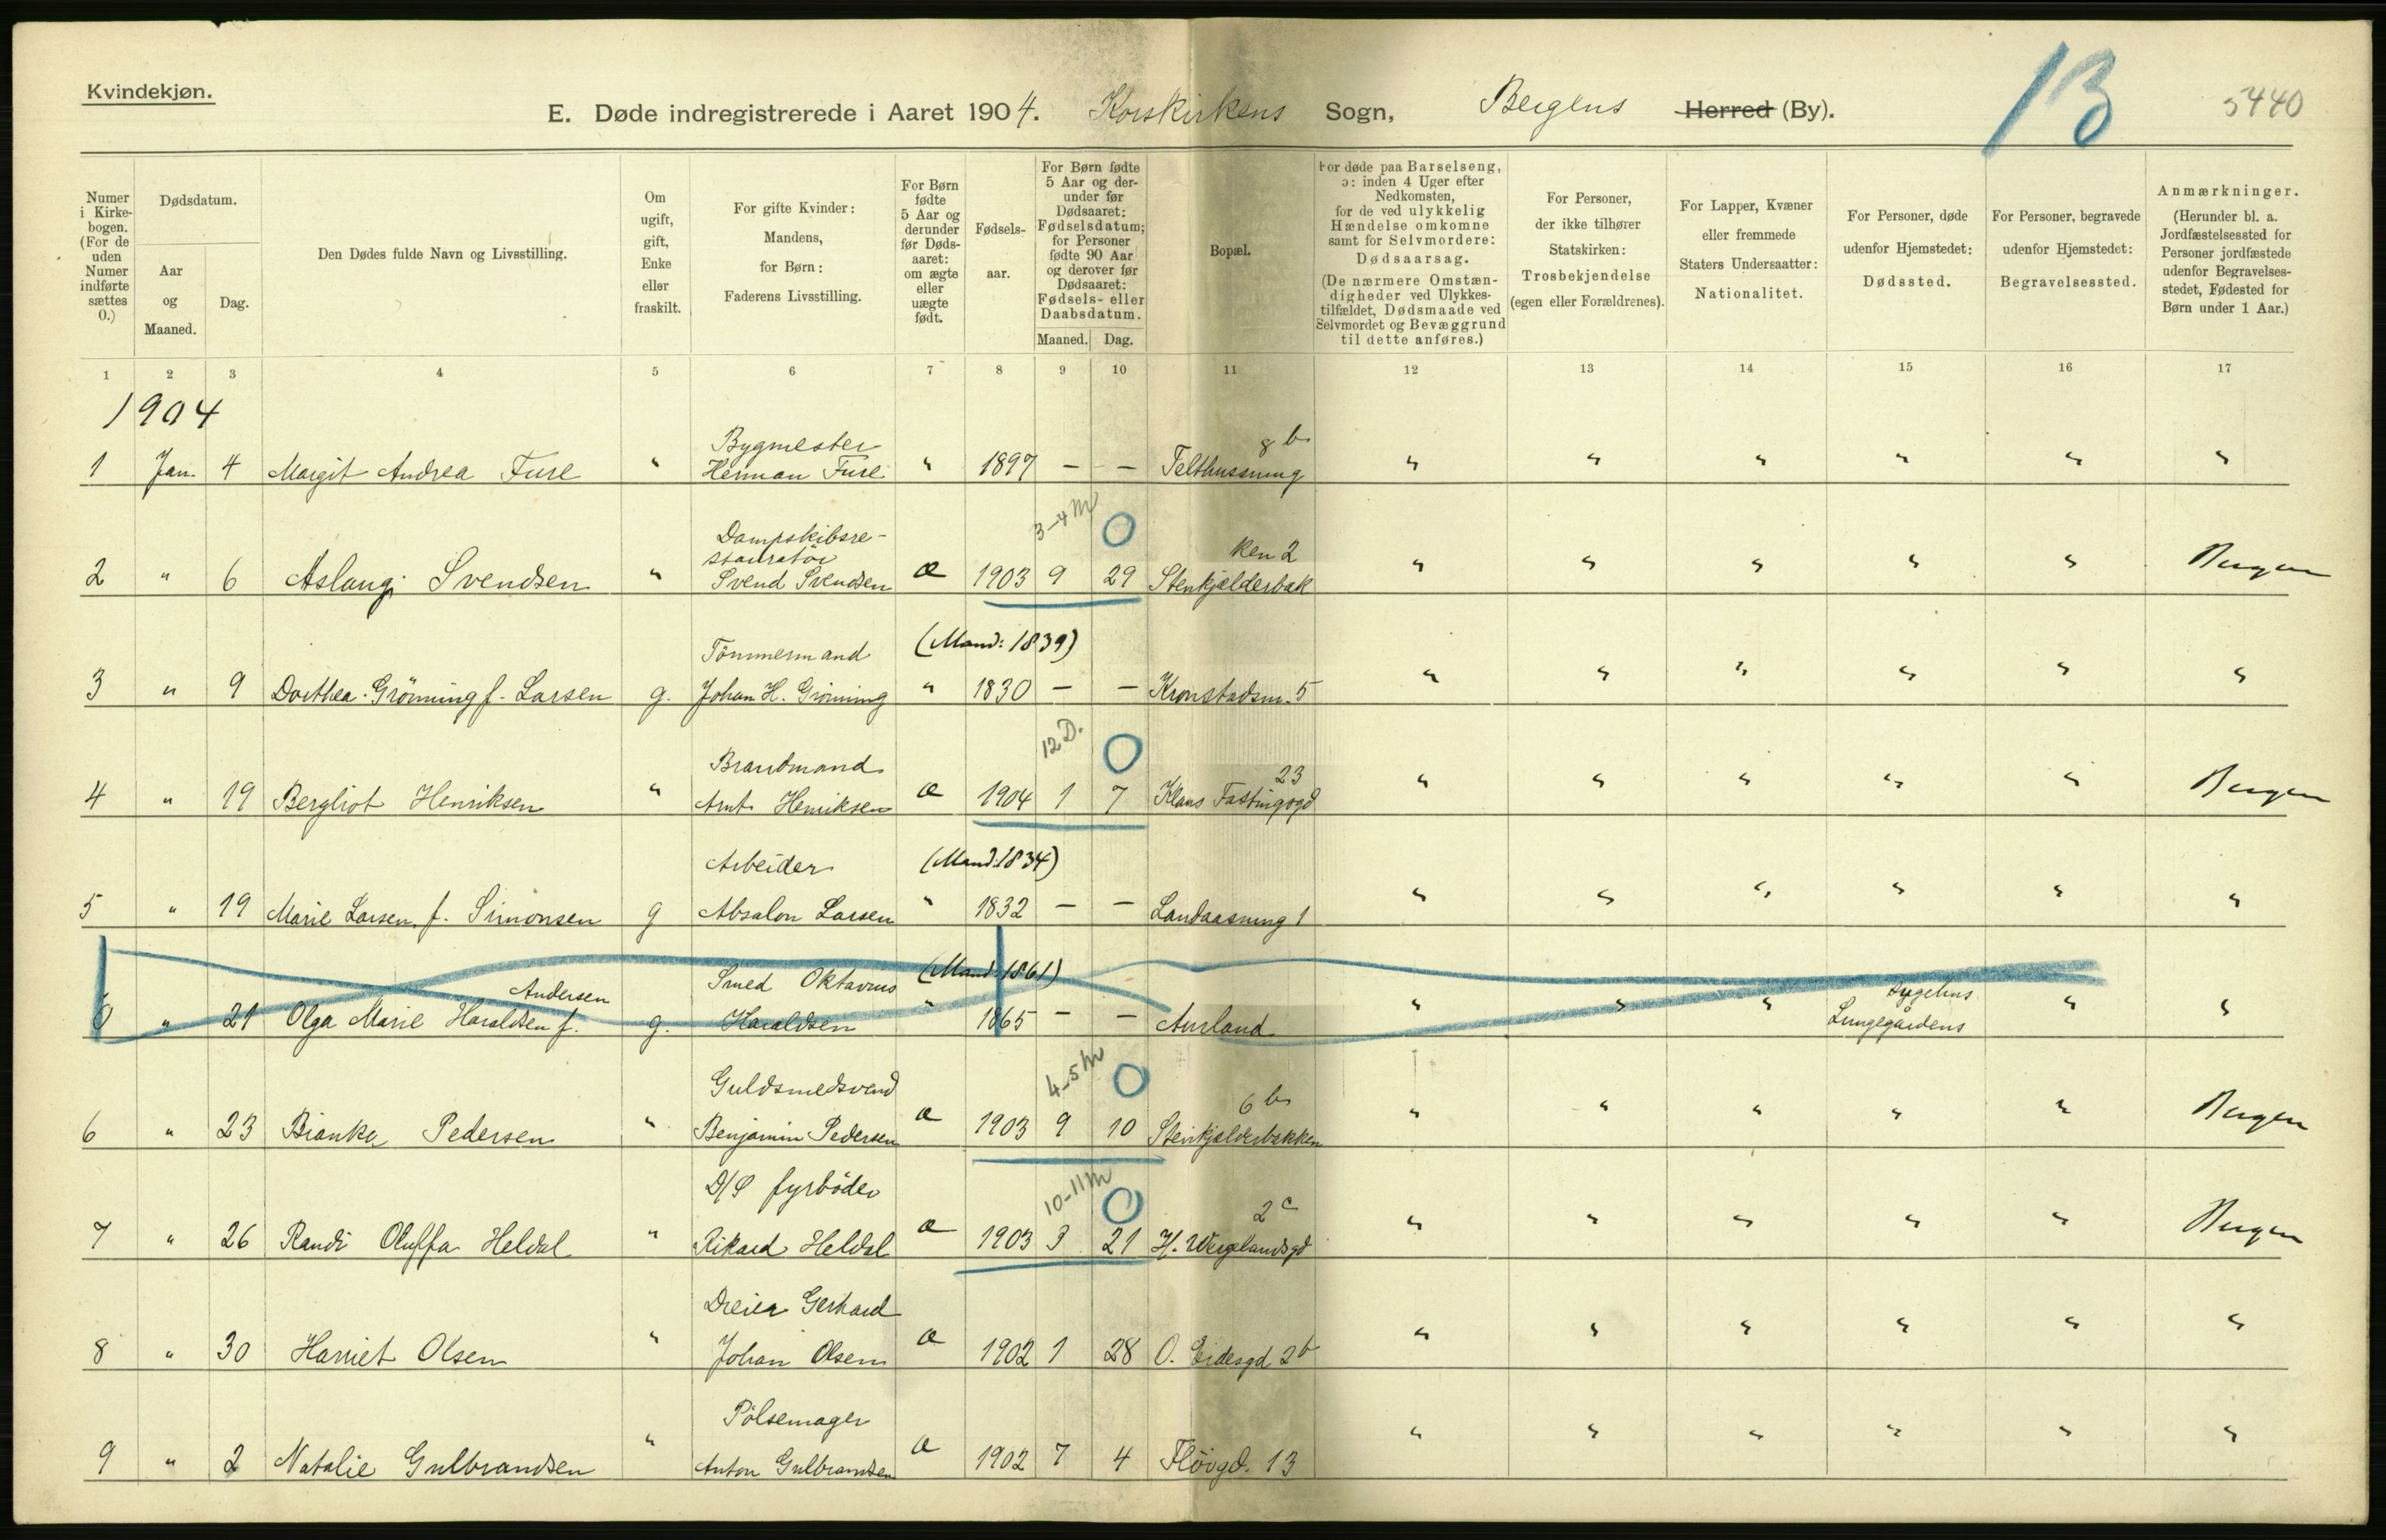 Kvindekjøn.
E. Døde indregistrerede i Aaret 1904. Korskirkens Sogn, Bergens Herred (By).
13
5440
Numer i Kirkebogen. (For de uden Numer indførte sættes 0.)
Dødsdatum.
Aar og Maaned.
Dag.
Den Dødes fulde Navn og Livsstilling.
Om ugift, gift, Enke eller fraskilt.
For gifte Kvinder: Mandens, for Børn: Faderens Livsstilling.
For Børn fødte 5 Aar og derunder før Dødsaaret: om ægte eller uægte født.
Fødselsaar.
For Børn fødte 5 Aar og derunder før Dødsaaret: Fødselsdatum; for Personer fødte 90 Aar og derover før Dødsaaret: Fødsels- eller Daabsdatum.
Maaned. Dag.
Bopæl.
For døde paa Barselseng, ɔ: inden 4 Uger efter Nedkomsten, for de ved ulykkelig Hændelse omkomne samt for Selvmordere: Dødsaarsag.
(De nærmere Omstændigheder ved Ulykkestilfældet, Dødsmaade ved Selvmordet og Bevæggrund til dette anføres.)
For Personer, der ikke tilhører Statskirken: Trosbekjendelse (egen eller Forældrenes).
For Lapper, Kvæner eller fremmede Staters Undersaatter: Nationalitet.
For Personer, døde udenfor Hjemstedet: Dødssted.
For Personer, begravede udenfor Hjemstedet: Begravelsessted.
Anmærkninger.
(Herunder bl. a. Jordfæstelsessted for Personer jordfæstede udenfor Begravelsesstedet, Fødested for Børn under 1 Aar.)
1 2 3 4 5 6 7 8 9 10 11 12 13 14 15 16 17
1904
Bygmester 8 b
1 Jan. 4 Margit Andrea Fure " Herman Fure " 1897 – – Telthussmug " " " " " "
Dampskibsre- 3-4 M O
stauratør ken 2
2 " 6 Aslaug Svendsen " Svend Svendsen æ 1903 9 29 Stenkjælderbak " " " " " Bergen
Tömmermand (Mand: 1839)
3 " 9 Dorthea Grönning f. Larsen g. Johan H. Grönning " 1830 – – Kronstadsm. 5 " " " " " "
Brandmand 12 D. O 23
4 " 19 Bergliot Henriksen " Arnt Henriksen æ 1904 1 7 Klaus Fastingsgd " " " " " Bergen
Arbeider (Mand: 1834)
5 " 19 Marie Larsen f. Simonsen g Absalon Larsen " 1832 – – Landaassmug 1 " " " " " "
Andersen Smed Oktavius (Mand: 1861) Sygehus
0 " 21 Olga Marie Haraldsen f. g. Haraldsen " 1865 – – Aurland " " " Lungegårdens " "
Guldsmedsvend 4-5 M O 6 b
6 " 23 Bianka Pedersen " Benjamin Pedersen æ 1903 9 10 Stenkjælderbakken " " " " " Bergen
D/S fyrböder 10-11 M O 2 c
7 " 26 Randi Oluffa Heldal " Rikard Heldal æ 1903 3 21 H. Wergelandsgd " " " " " Bergen
Dreier Gerhard
8 " 30 Harriet Olsen " Johan Olsen æ 1902 1 28 O. Eidesgd 2 b " " " " " "
Pölsemager
9 " 2 Natalie Gulbrandsen " Anton Gulbrandsen æ 1902 7 4 Flöigd. 13 " " " " " "